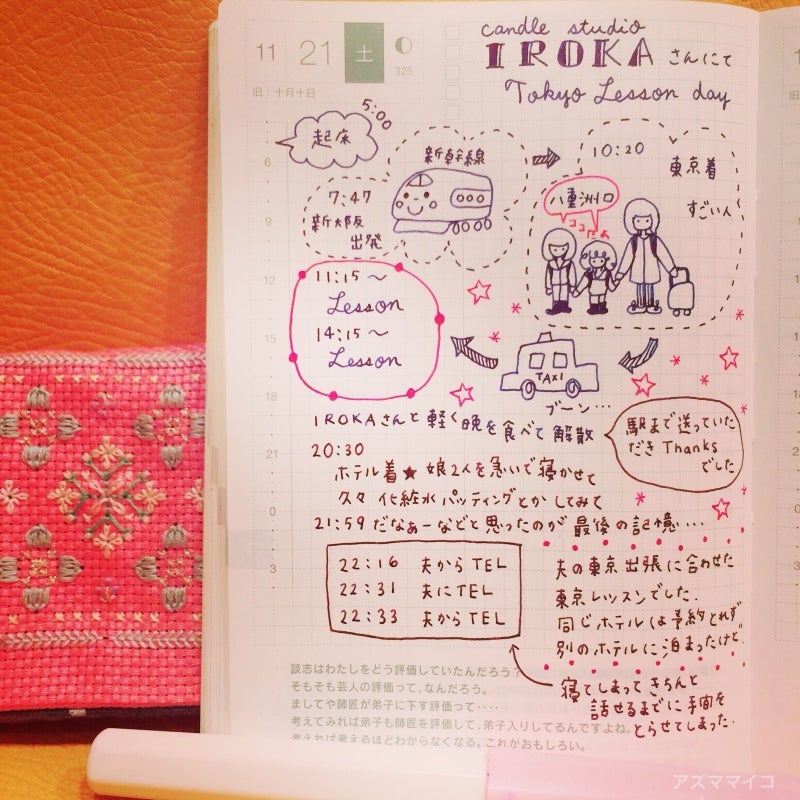 candle studio
11 21 土
IROKA さんにて
325
旧：十月十日
Tokyo Lesson day
5:00
起床
新幹線
10:20
東京着
7:47
新大阪
出発
八重洲口
ココだよ
すごい人
11:15〜
Lesson
14:15〜
Lesson
TAXI
ブーン…
IROKAさんと軽く晩を食べて解散
駅まで送っていた
だき Thanks
でした
20:30
ホテル着★娘2人を急いで寝かせて
久々化粧水パッティングとかしてみて
21:59だなぁーなどと思ったのが最後の記憶…
22:16 夫からTEL
22:31 夫にTEL
22:33 夫からTEL
夫の東京出張に合わせた
東京レッスンでした.
同じホテルは予約とれず
別のホテルに泊まったけど
寝てしまってきちんと
話せるまでに手間を
とらせてしまった.
6
9
12
15
18
21
0
3
談志はわたしをどう評価していたんだろう？
そもそも芸人の評価って、なんだろう。
ましてや師匠が弟子に下す評価って‥‥
考えてみれば弟子も師匠を評価して、弟子入りしてるんですよね。
考えれば考えるほどわからなくなる。これがおもしろい。
アズママイコ